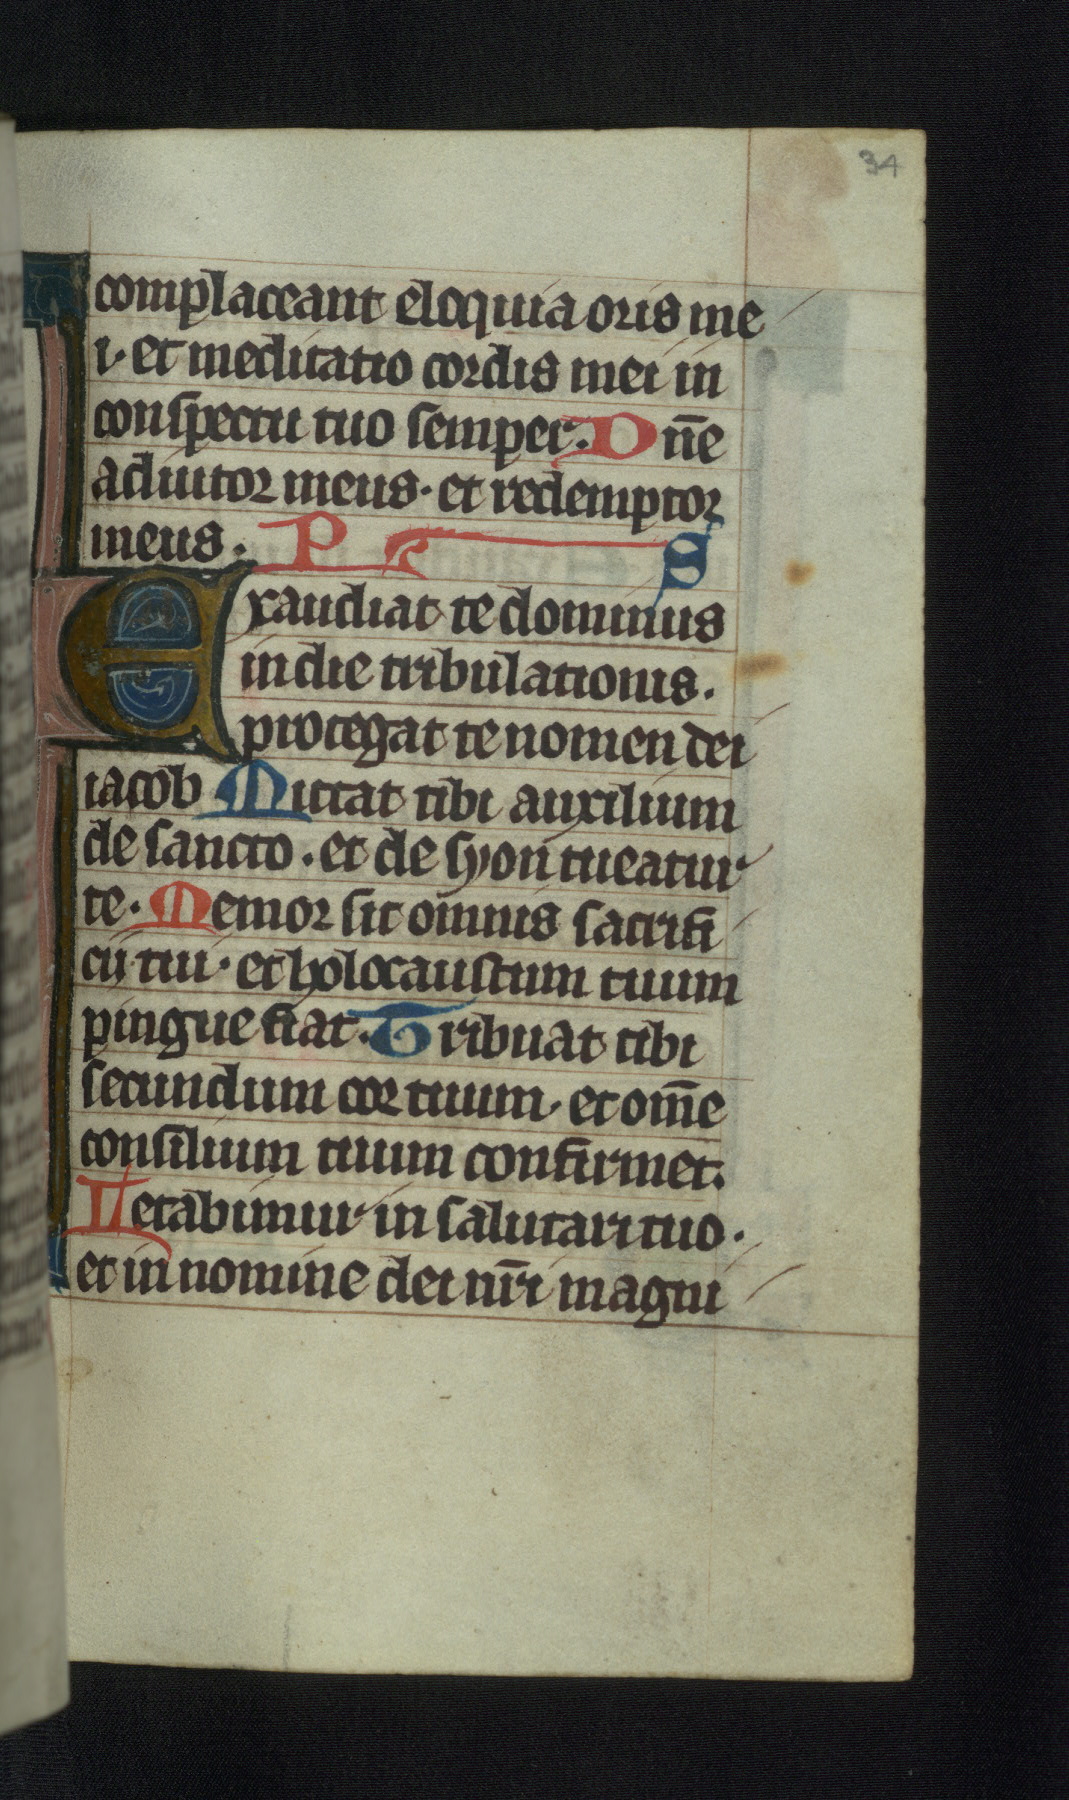 34
complaceant eloquia oris me
i. et meditatio cordis mei in
conspectu tuo semper. Dñe
adiutor meus. et redemptor
meus. P S
Exaudiat te dominus
in die tribulationis.
protegat te nomen dei
iacob Mittat tibi auxilium
de sancto. et de syon tueatur
te. Memor sit omnis sacrifi
cii tui. et holocaustum tuum
pingue fiat. Tribuat tibi
secundum cor tuum. et om̄e
consilium tuum confirmet.
Letabimur in salutari tuo.
et in nomine dei nr̄i magni